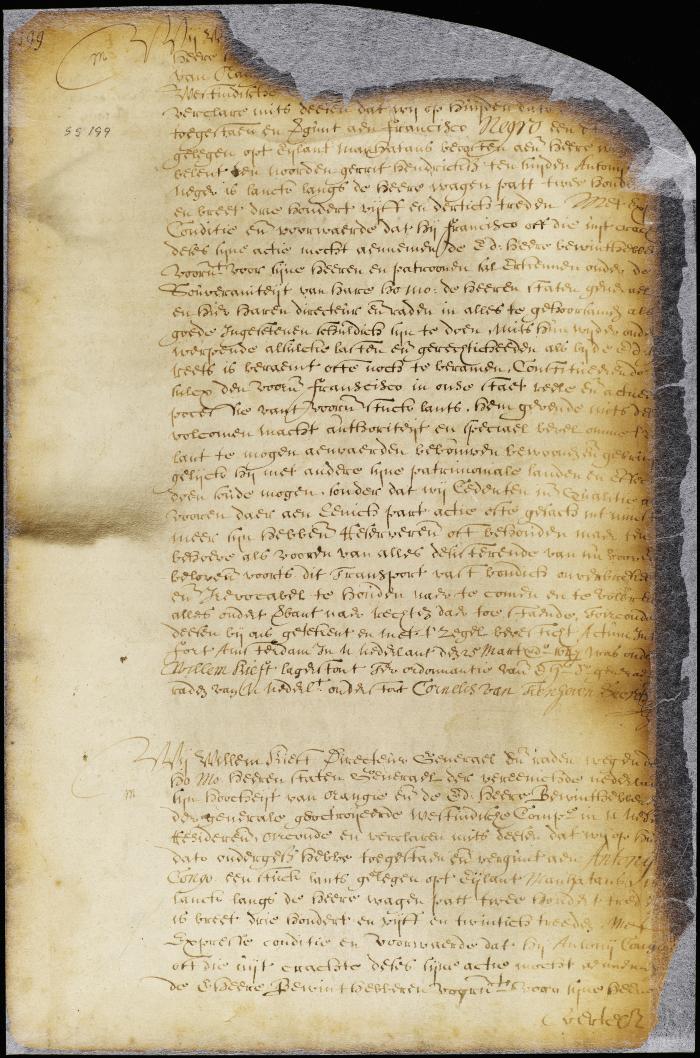 199
Wij W
heere
van Oran
Westindische
verclare mits desen dat wij op huijden dato
toegestaen en Vgunt aen francisco Negro een
gelegen opt Eijlant manhatans beooten aen heere
belent ten noorden gerrit hendricksz ten suijden Antoni
neger is lanck langs de heere wagen patt twee hond
en breet drie hondert vijff en dertich treden Met Exp
SS 199
Conditie en voorwaerde dat hij francisco off die uijt crach
deses sijne actie mocht aennemen de Ed: heere bewinthebbe
voornt voor sijne heeren en patroonen sal Erkennen onder de
Souveraniteijt van hare ho: mo: de heeren staten generael
en hier haren directeur en raden in alles te gehoorsamen als
goede Ingesetenen schuldich sijn te doen mits hem wijders ond
werpende alsulcke lasten en gerechticheeden als bij de Ed
reets is beraemt ofte noch te beramen, Constitueerende
sulcx den voorn francisco in onse staet reele en actuee
possessie vant voorn stuck lants, hem gevende mits de
volcomen macht authoriteijt en speciael bevel omme t
lant te mogen aenvaerden bebouwen bewoonen gebruij
gelijck hij met andere sijne patrimoniale landen en effec
doen sude mogen, sonder dat wij Cedenten in qualitie
vooren daer aen Eenich part actie ofte gesach int minst
meer sijn hebben Reserveren oft behouden maer ten
behoeve als vooren van alles desisterende van nu voor
beloven voorts dit Transport vast bondich onverbreke
en Irevocabel te houden naer te comen en te voldoen
alles onder Vbant naer rechten daer toe staende, Oirconde
desen bij ons geteekent en met t Zegel bevesticht Actum In
fort Amsterdam In N nederlant desen 25 Martij Ao 1647 was onder
Willem Kieft lager stont Ter ordonnantie van d Hr dr generael
raden van N nederlt onder stont Cornelis van Tienhoven Secrets
Wij Willem Kieft Directeur Generael En raden wegen de
ho: mo: heeren staten Generael der vereenichde nederla
sijn hoocheijt van orangie en de Ed: heere Bewinthebber
der generale geoctroijeerde westindische Compe in N nede
Residerende, oirconde en verclaren mits desen dat wij op hu
dato ondergesz hebbe toegestaen en vergunt aen Antonij
Congo een stuck lants gelegen opt Eijlant Manhatans
lanck langs de heere wagen patt twee hondert tred
is breet drie hondert en vijff en twintich treeden Met
Expresse conditie en Voorwaerde dat hij Antonij Congo
oft die uijt crachte deses sijne actie mocht aennem
de Eheere Bewinthebberen voornt voor sijne heere